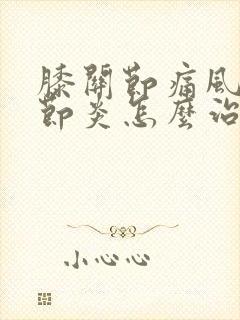 膝關節痛風
節炎怎麼治
小心心